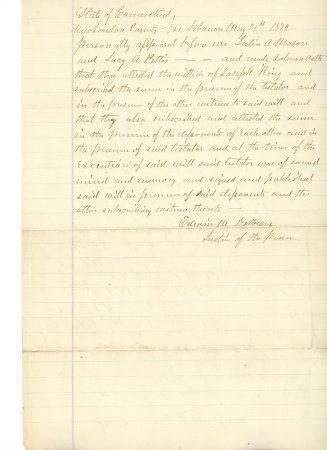 State of Connecticut,
New London County ss Lebanon May 21st 1872
Personally appeared before me A Mason
and Lucy A Pettis — — and made solemn oath
that they attested the within of Joseph King and
subscribed the same in the presence of the testator and
in the presence of the other witness to said will and
that they also subscribed and attested the same
in the presence of the deponents of each other and in
the presence of said testator and at the time of the
execution of said will said testator was of sound
mind and memory and signed and published
said will in presence of said deponents and the
other subscribing witness thereto —
Edwin M Dolbeare
Justice of the Peace